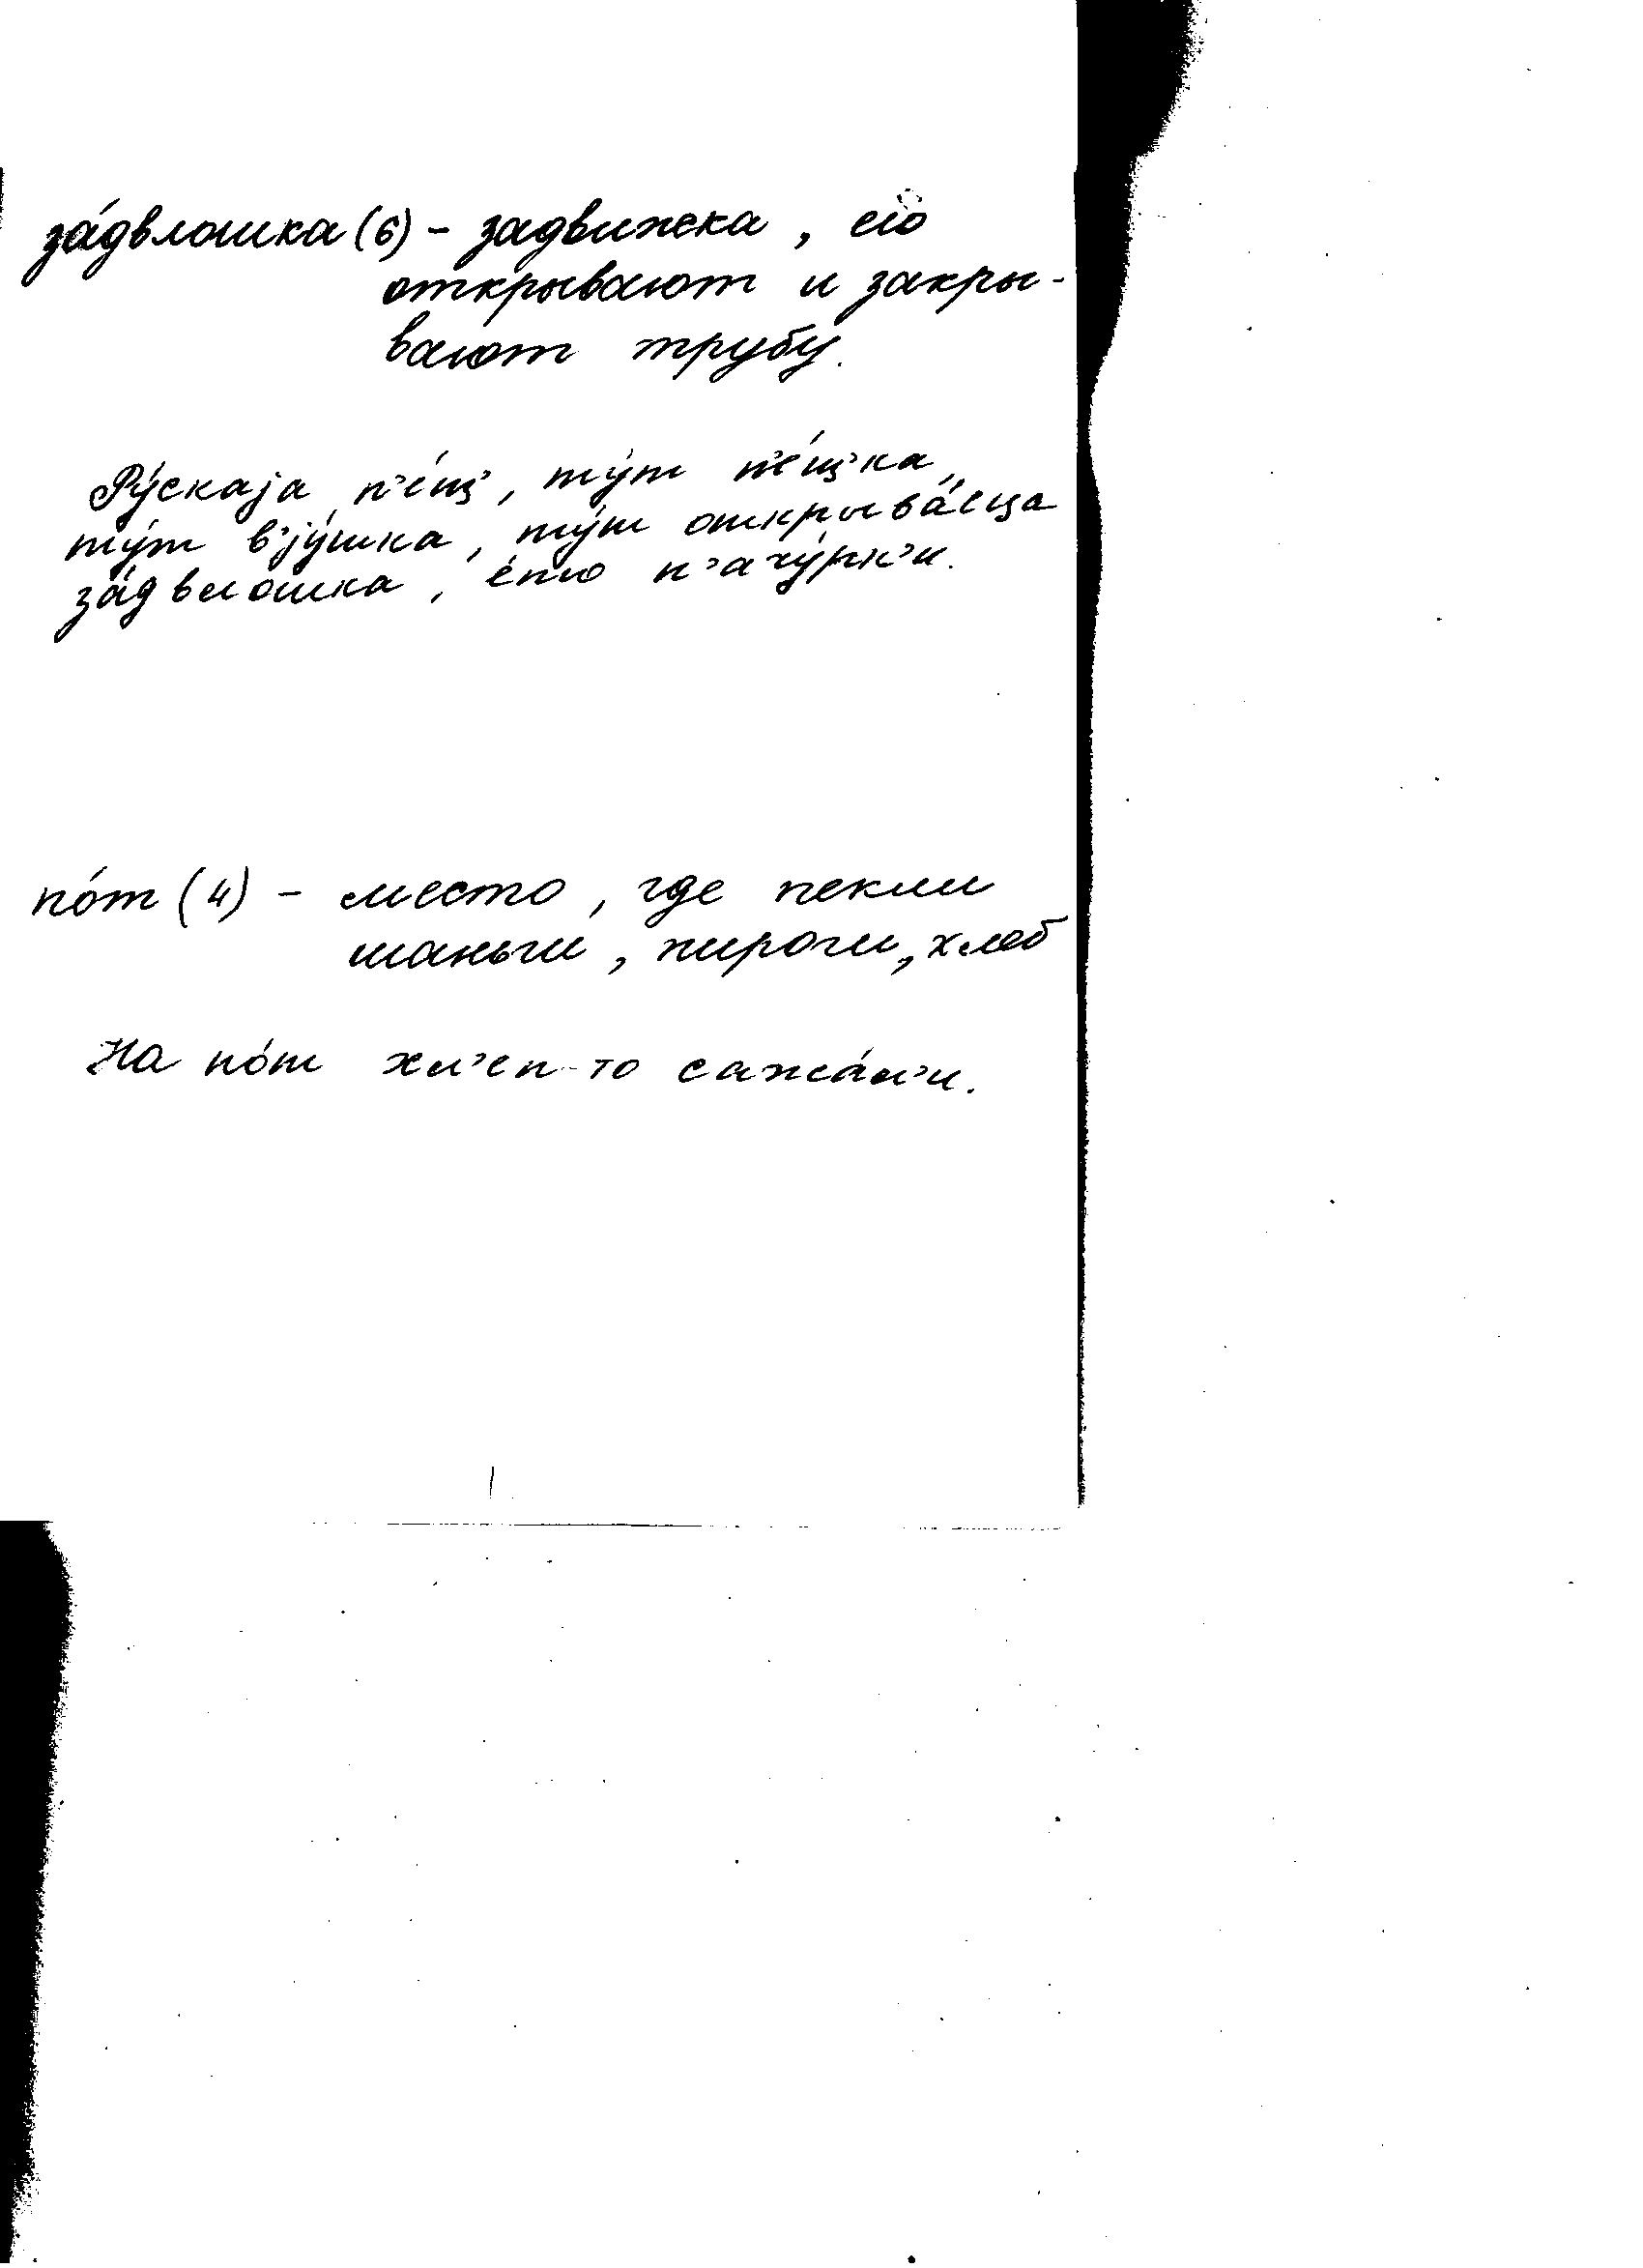 за́двлошка (6) – задвижка, ею
открывают и закры-
вают трубу.
Ру́скаjа п'е́щ', ту́т п'е́щ'ка,
ту́т в'jу́шка, ту́т открыва́еца
за́двлошка, п'ачу́рк'и.
по́т (4) – место, где пекли
шаньги, пироги, хлеб
На по́т хл'еп-то сажа́л'и.